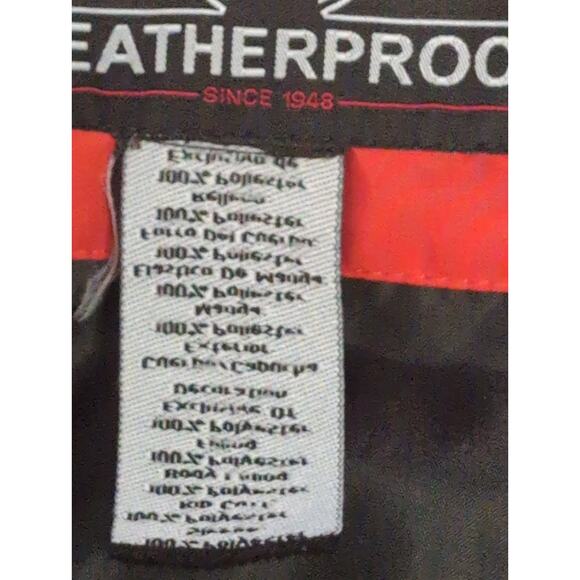 EATHERPROO
SINCE 1948
100% Polyester
Sleeve
100% Polyester
Rib Cuff
100% Polyester
Body Lining
100% Polyester
Filling
100% Polyester
Exclusive Of
Decoration
Cuerpo/Capucha
Exterior
100% Poliester
Manga
100% Poliester
Elastico De Manga
100% Poliester
Forro Del Cuerpo
100% Poliester
Relleno
100% Poliester
Exclusivo de